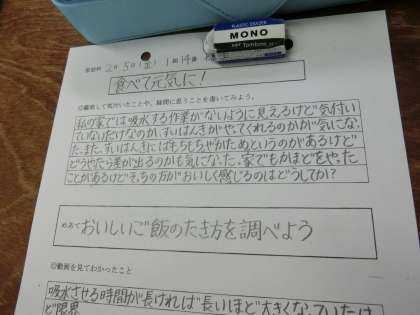 PLASTIC ERASER
MONO
Tombow
1組14番
食べて元気に！
◎観察して気付いたことや、疑問に思うことを書いてみよう。
私の家では吸水する作業がないように見えるけど気付い
ていないだけなのか、すいはんきがやってくれるのかが気になっ
た。また、すいはんきにはもちもちやかためというのがあるけど
どうやったら差が出るのかも気になった。家でもかまどをやった
ことがあるけどそっちの方がおいしく感じるのはどうしてか？
めあて おいしいご飯のたき方を調べよう
◎動画を見てわかったこと
吸水させる時間が長ければ長いほど大きくなっていたけ
ど限界